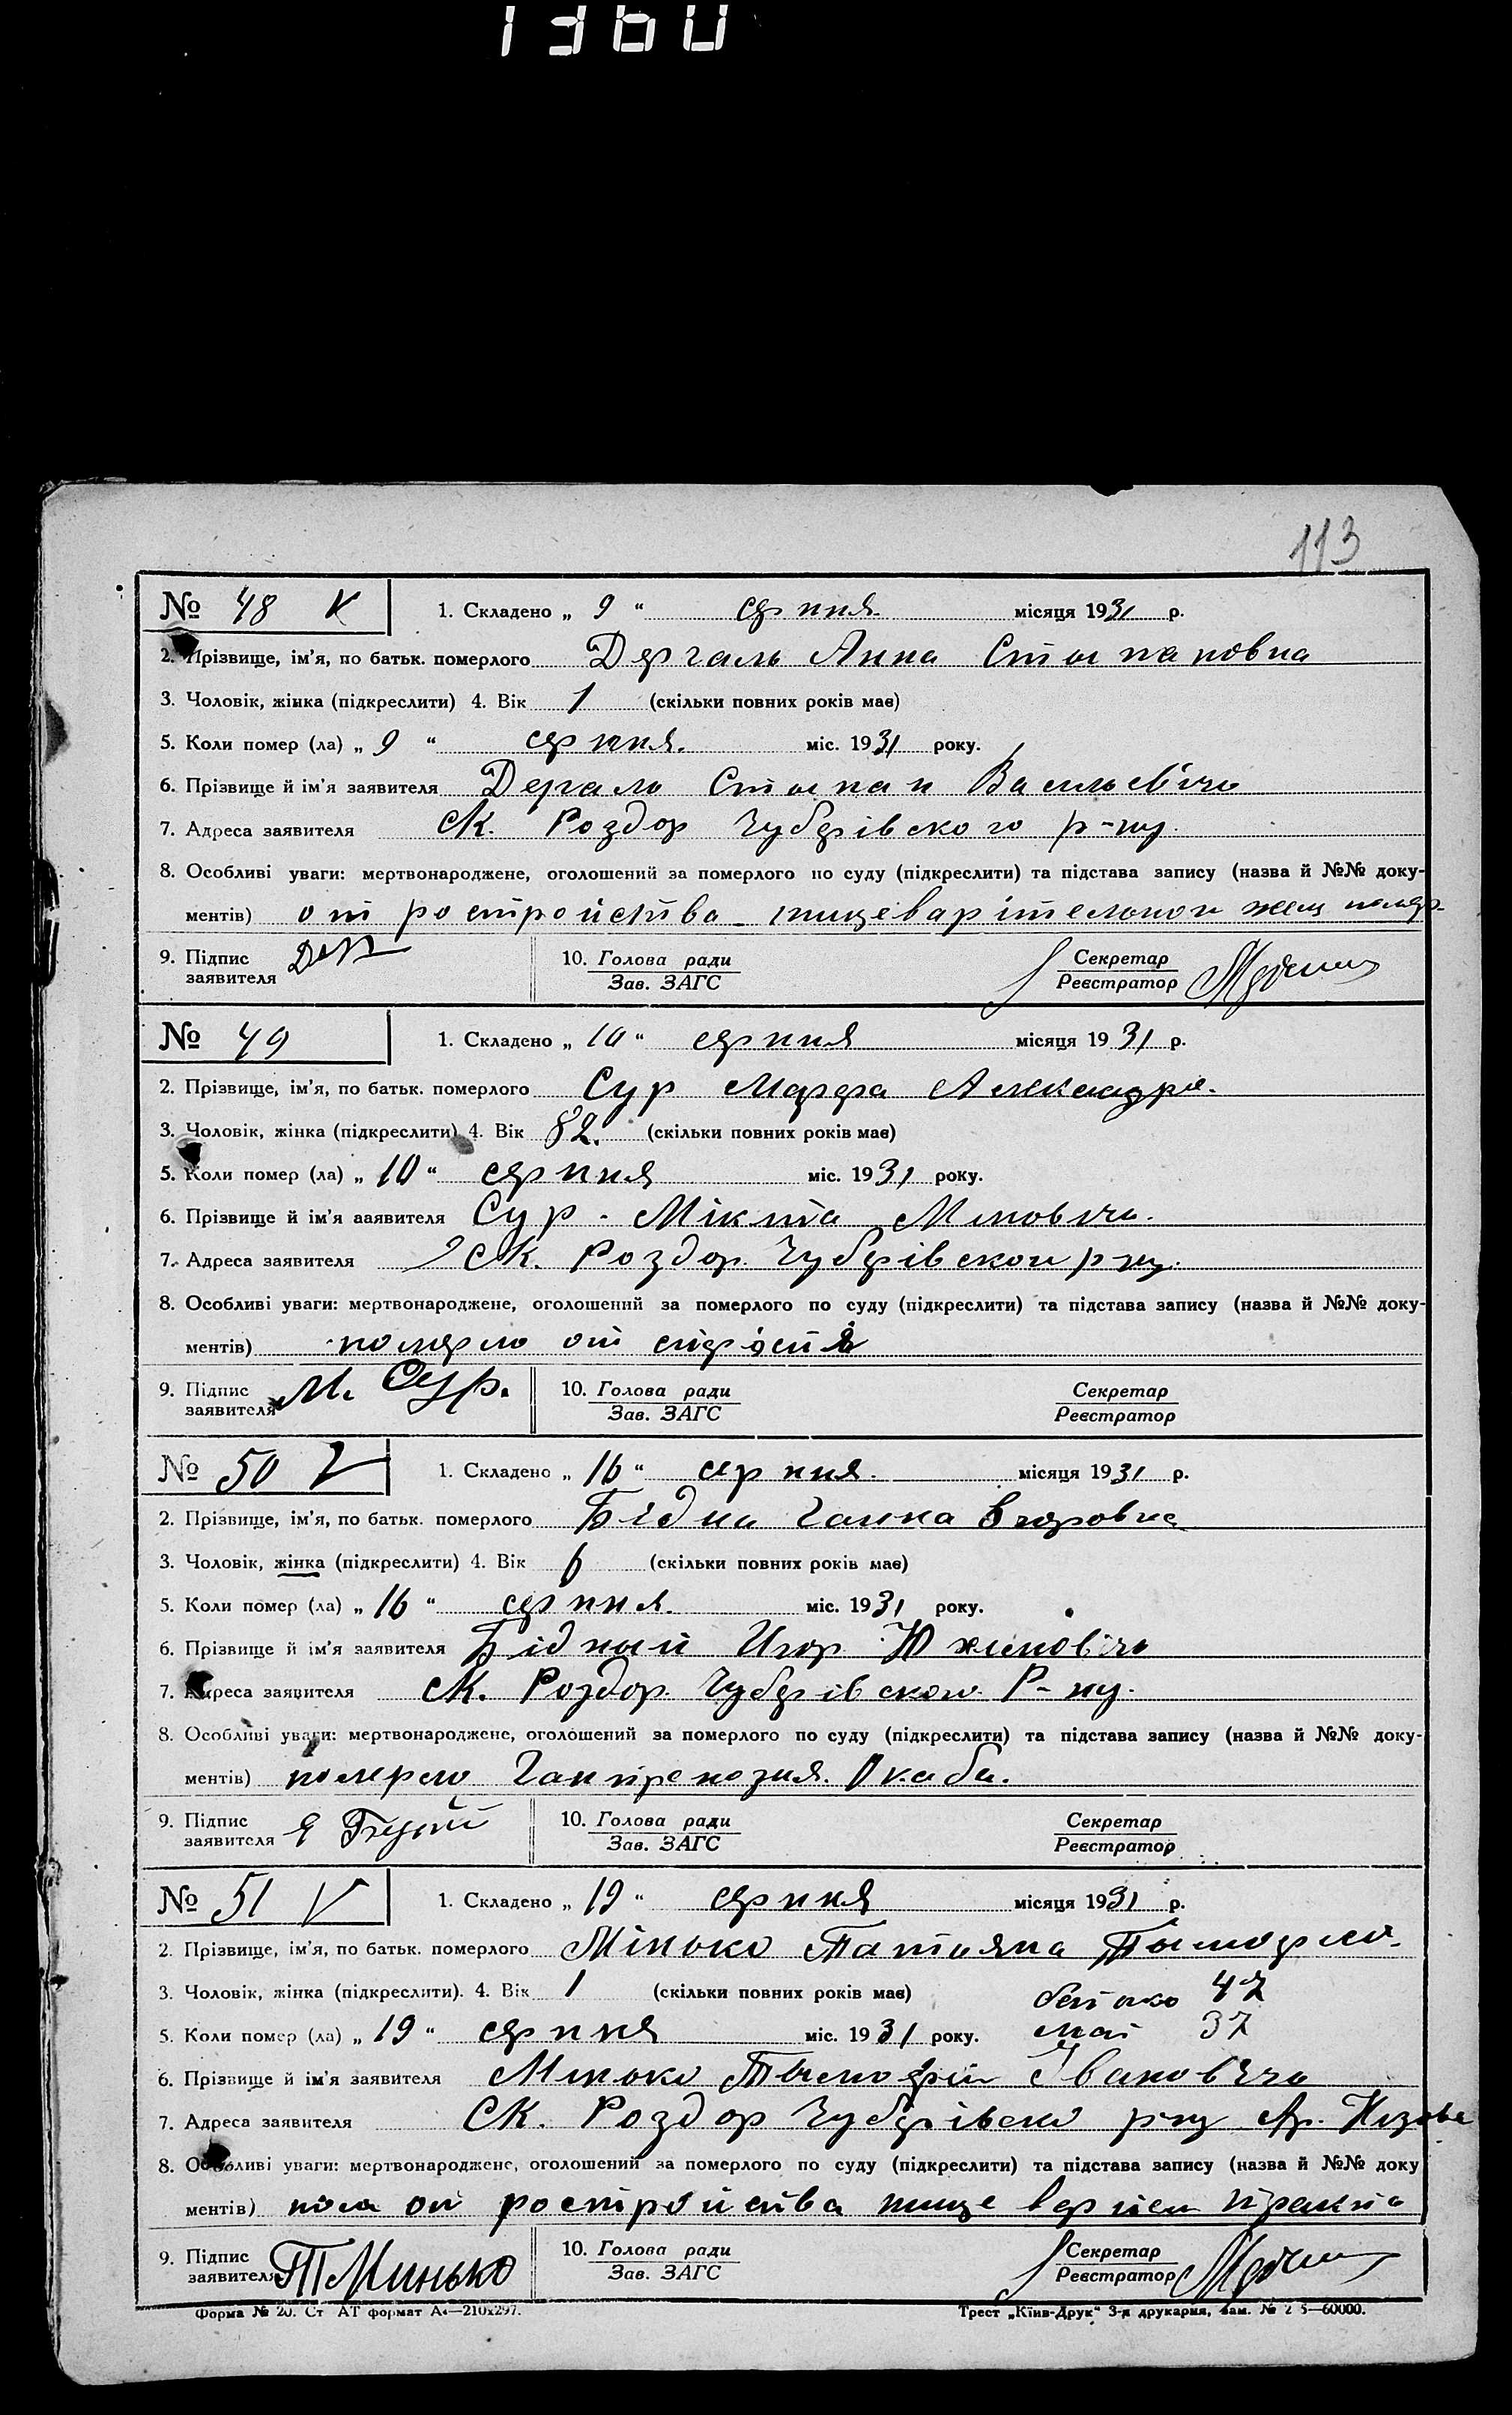 1360
113
№ 48 К 1. Складено „ 9 “ серпня місяця 1931 р.
2. Прізвище, ім'я, по батьк. померлого Дергаль Анна Стыпановна
3. Чоловік, жінка (підкреслити) 4. Вік 1 (скільки повних років має)
5. Коли помер (ла) „ 9 “ серпня. міс. 1931 року.
6. Прізвище й ім'я заявителя Дергаль Стыпан Васильевічь
7. Адреса заявителя сК. Роздор Чубарівского р-ну.
8. Особливі уваги: мертвонароджене, оголошений за померлого по суду (підкреслити) та підстава запису (назва й №№ доку-
ментів) от ростройства пищеварітельного
9. Підпис заявителя 10. Голова ради Зав. ЗАГС Секретар Реєстратор
№ 49 1. Складено „ 10 “ серпня місяця 1931 р.
2. Прізвище, ім'я, по батьк. померлого Сур Марфа Александро.
3. Чоловік, жінка (підкреслити) 4. Вік 82. (скільки повних років має)
5. Коли помер (ла) „ 10 “ серпня міс. 1931 року.
6. Прізвище й ім'я заявителя Сур Мікита
7. Адреса заявителя сК. Роздор. Чубарівского р-ну.
8. Особливі уваги: мертвонароджене, оголошений за померлого по суду (підкреслити) та підстава запису (назва й №№ доку-
ментів) померло от старості
9. Підпис заявителя М. Сур. 10. Голова ради Зав. ЗАГС Секретар Реєстратор
№ 50 V 1. Складено „ 16 “ серпня. місяця 1931 р.
2. Прізвище, ім'я, по батьк. померлого Бідна Ганна Егоровна
3. Чоловік, жінка (підкреслити) 4. Вік 6 (скільки повних років має)
5. Коли помер (ла) „ 16 “ серпня. міс. 1931 року.
6. Прізвище й ім'я заявителя Бідный
7. Адреса заявителя сК. Роздор. Чубарівского Р-ну.
8. Особливі уваги: мертвонароджене, оголошений за померлого по суду (підкреслити) та підстава запису (назва й №№ доку-
ментів) померло
9. Підпис заявителя 10. Голова ради Зав. ЗАГС Секретар Реєстратор
№ 51 V 1. Складено „ 19 “ серпня місяця 1931 р.
2. Прізвище, ім'я, по батьк. померлого Мінько Татьяна Тымофіе.
3. Чоловік, жінка (підкреслити). 4. Вік 1 (скільки повних років має) батько 47
5. Коли помер (ла) „ 19 “ серпня міс. 1931 року. мат 37
6. Прізвище й ім'я заявителя Минько Тымофій Івановічь
7. Адреса заявителя сК. Роздор Чубарівско р-ну
8. Особливі уваги: мертвонароджене, оголошений за померлого по суду (підкреслити) та підстава запису (назва й №№ доку
ментів) от ростройства пище
9. Підпис заявителя Т Минько 10. Голова ради Зав. ЗАГС Секретар Реєстратор
Форма № 20. Ст АТ формат А4—210х297. Трест „Київ-Друк“ 3-я друкарня, зам. № 2 5—60000.